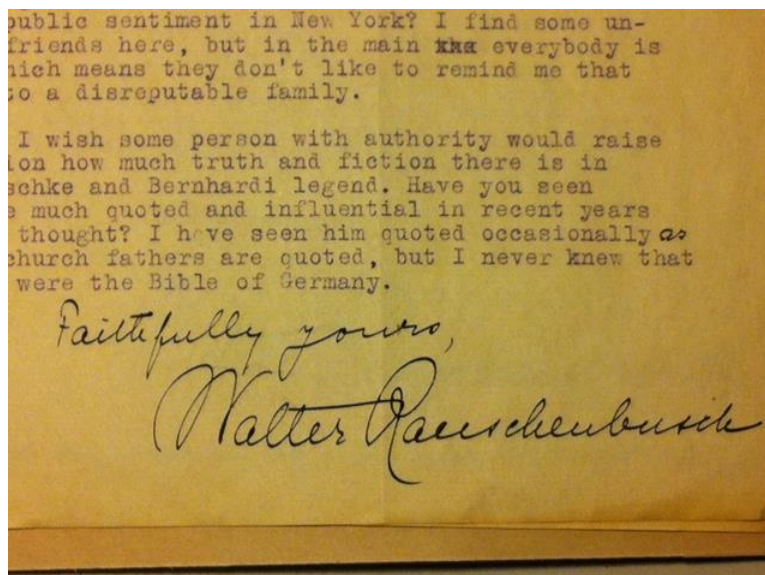 public sentiment in New York? I find some un-
friends here, but in the main the everybody is
hich means they don't like to remind me that
to a disreputable family.
I wish some person with authority would raise
ion how much truth and fiction there is in
schke and Bernhardi legend. Have you seen
e much quoted and influential in recent years
thought? I have seen him quoted occasionally as
church fathers are quoted, but I never knew that
were the Bible of Germany.
Faithfully yours,
Walter Rauschenbusch